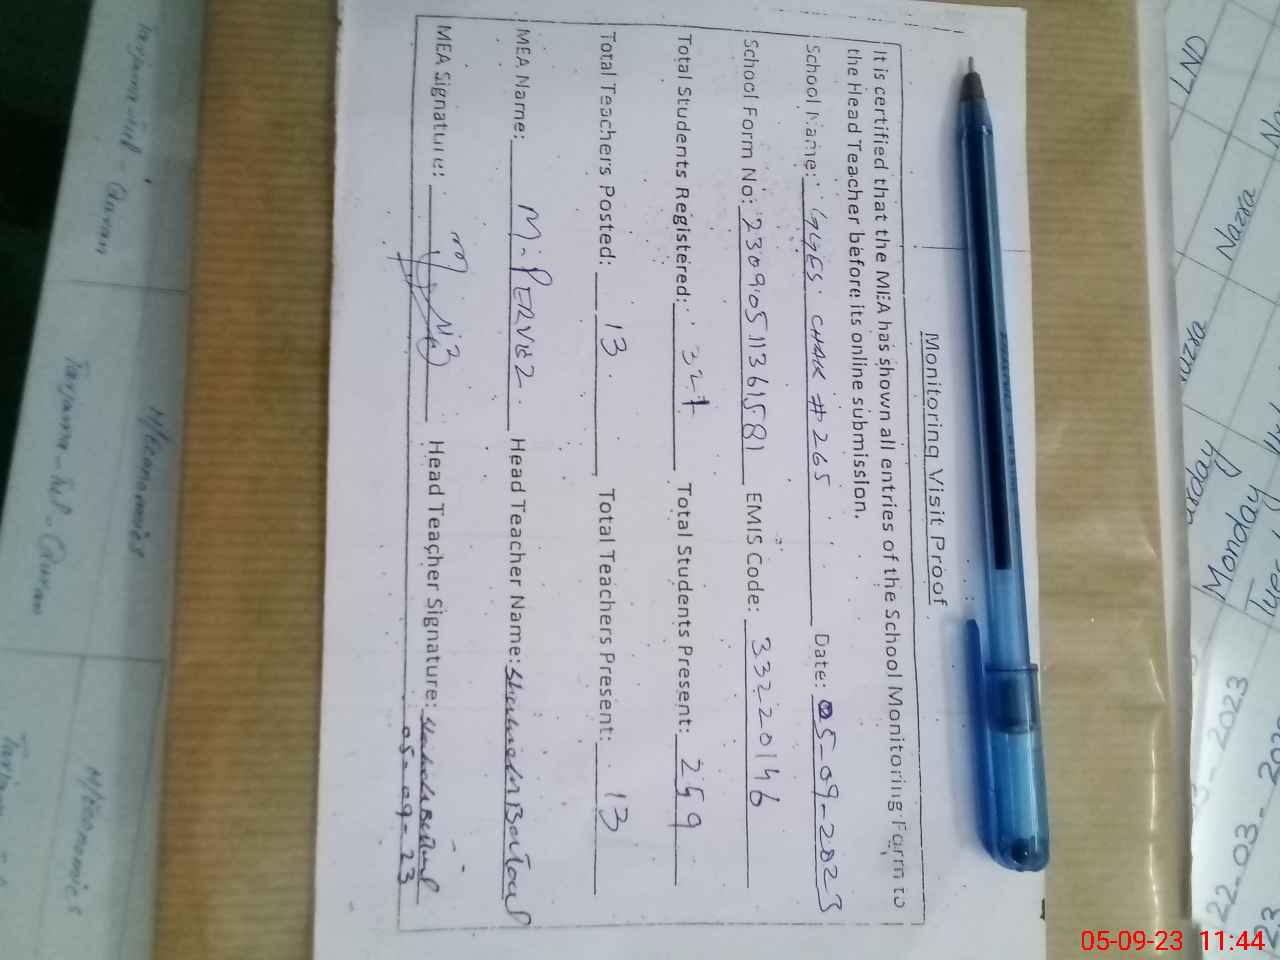 Monitoring Visit Proof
It is certified that the MEA has shown all entries of the School Monitoring Form to
the Head Teacher before its online submission.
School Name: GGES CHAK # 265 Date: 05-09-2023
School Form No: 2309051136 1581 EMIS Code: 33220146
Total Students Registered: 327 Total Students Present: 259
Total Teachers Posted: 13 Total Teachers Present: 13
MEA Name: M. PERVEZ Head Teacher Name:
MEA Signature: Head Teacher Signature:
05-09-23
Tarjama-tul-Quran
H/economics
Tarjama-tul-Quran
H/economics
LND
Nazra
Nazra
Monday
22.03.202
2023
05-09-23 11:44